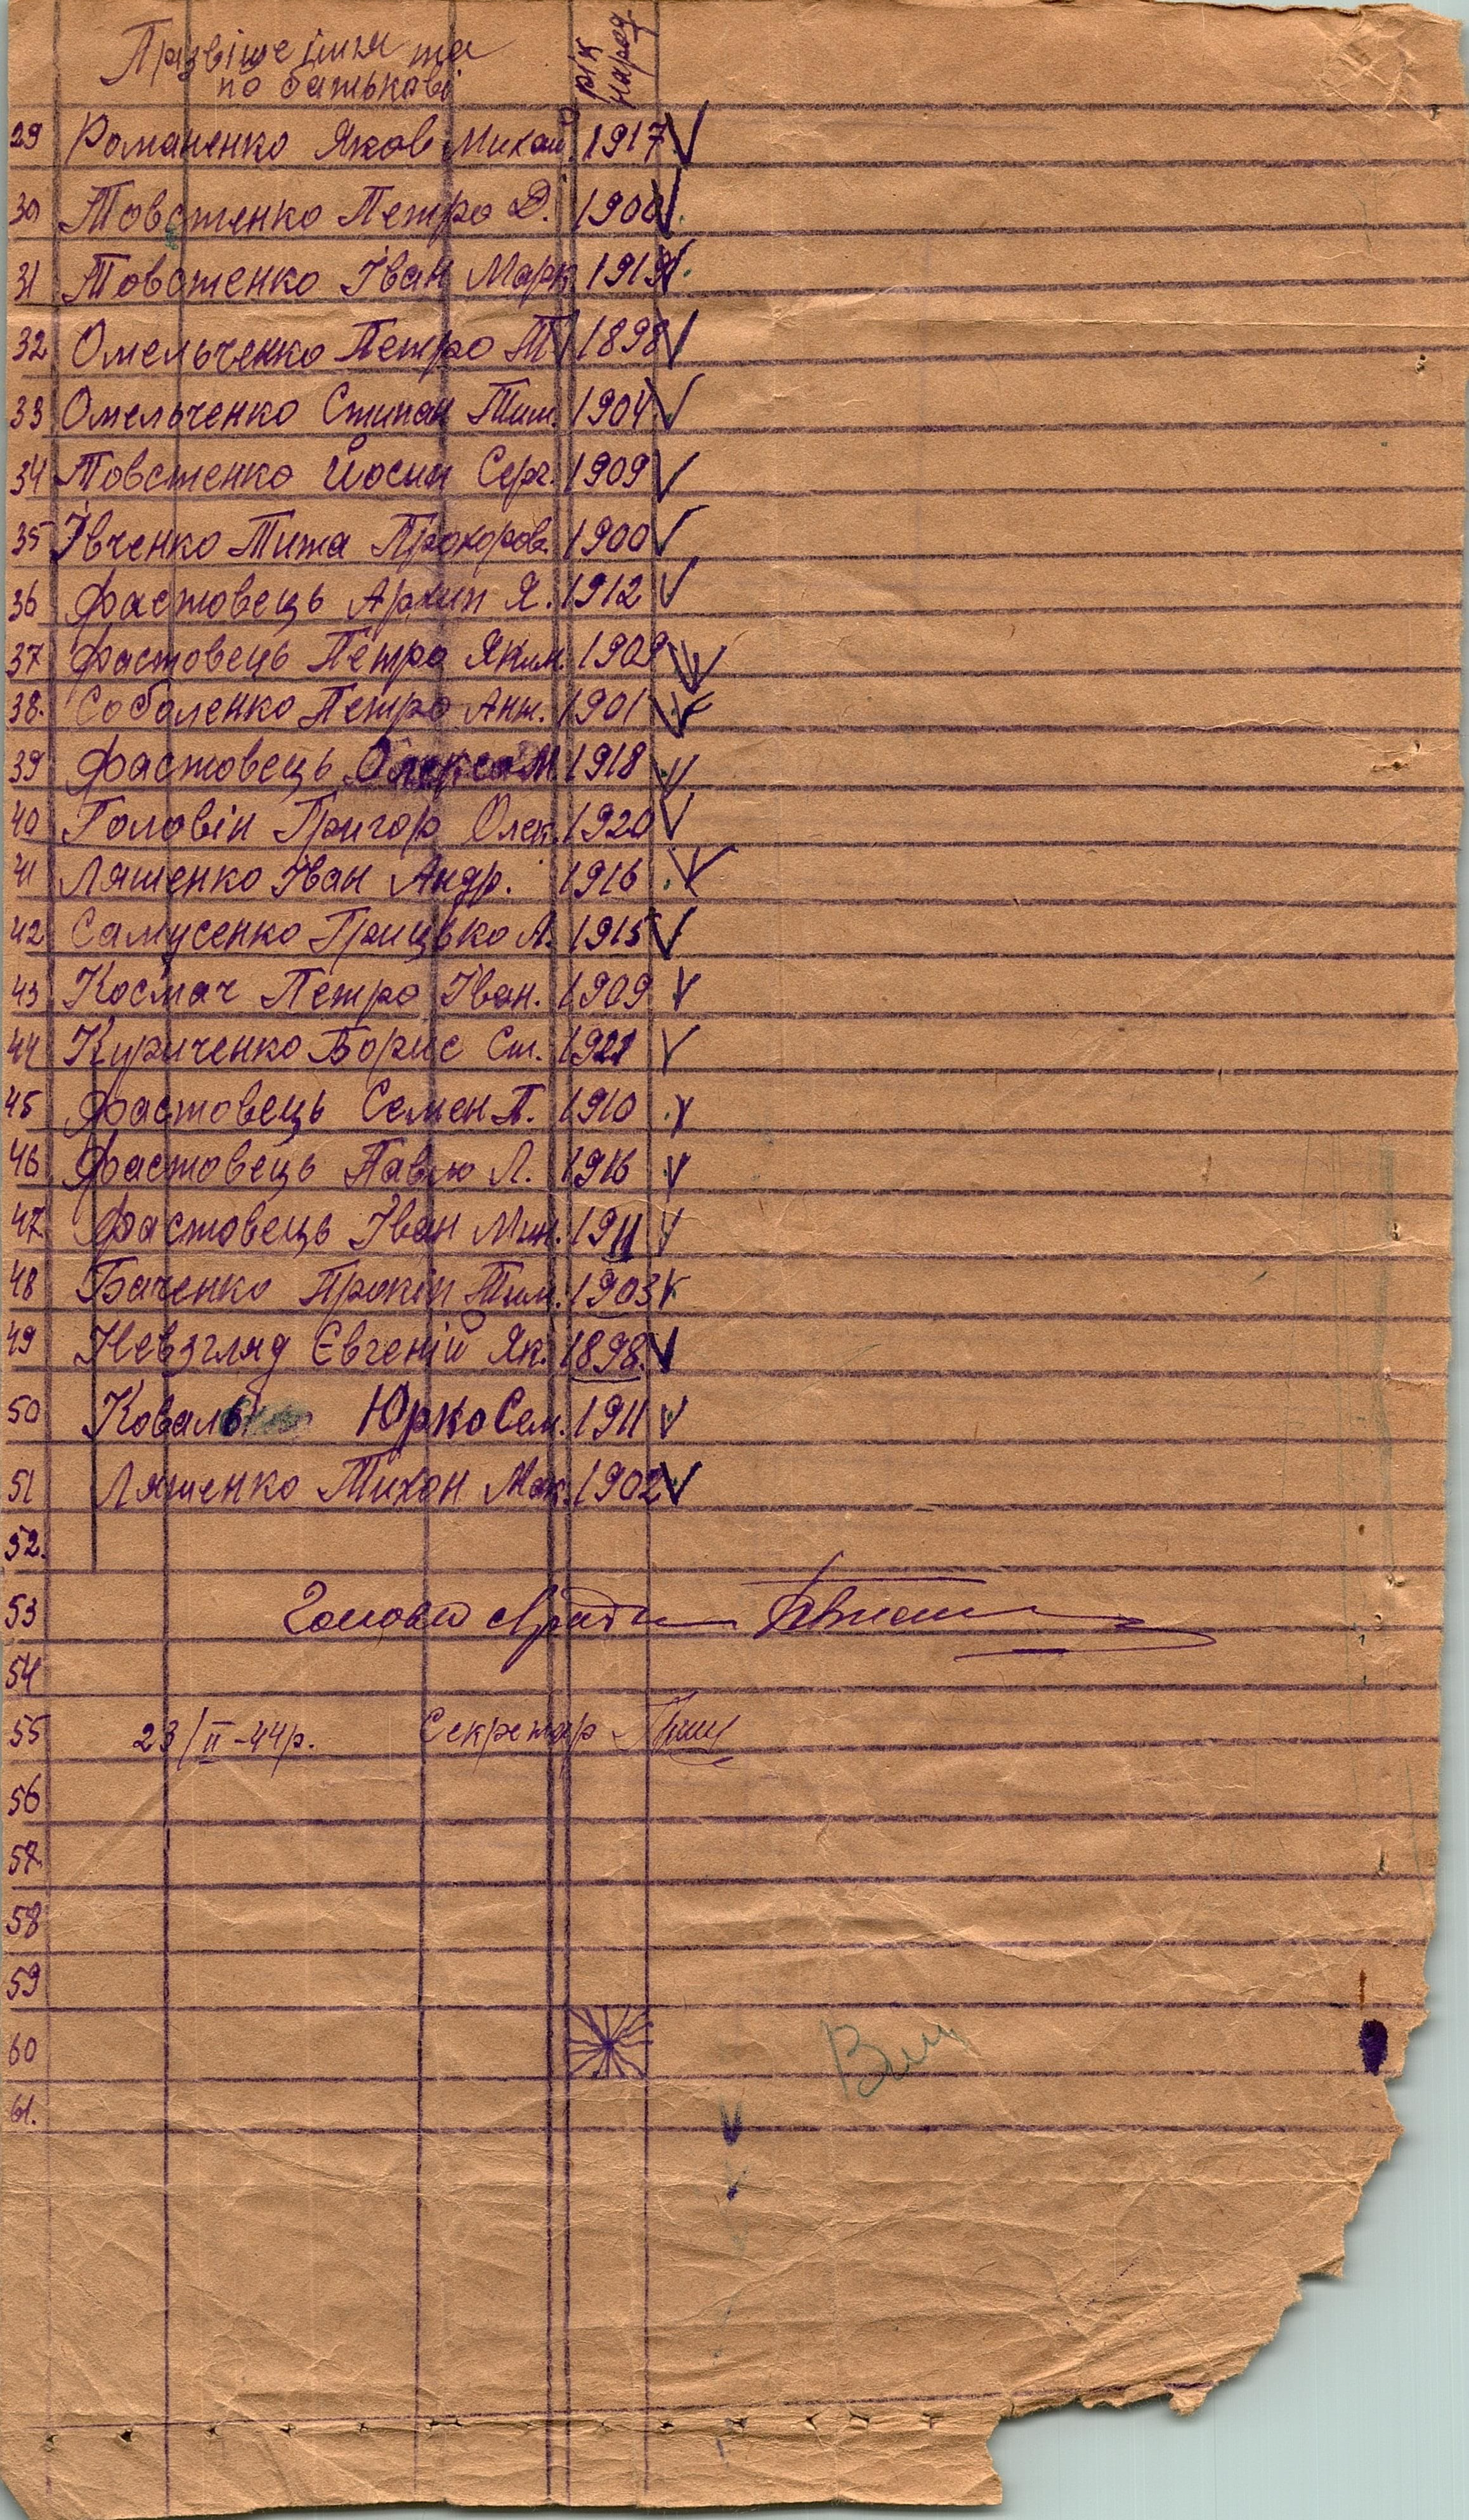 Прізвіще імня та рік
по батькові народ.
29 Романенко Яков Михай. 1917 V
30 Товстенко Петро Д. 1900 V
31 Товстенко Іван Марк 1919 V
32 Омельченко Петро Т. 1898 V
33 Омельченко Стипан Тим. 1904 V
34 Товстенко Йосип Серг. 1909 V
35 Івченко Тита Прохоров. 1900 V
36 Фастовець Архип Я. 1912 V
37 Фастовець Петро Яким. 1909 V
38. Соболенко Петро Ант. 1901 V
39 Фастовець Олекса М 1918 V
40 Головін Григор Олек. 1920 V
41 Ляшенко Іван Андр. 1916 V
42 Самусенко Грицько А. 1915 V
43 Космач Петро Іван. 1909 V
44 Куриченко Борис Ст. 1921 V
45 Фастовець Семен П. 1910 V
46 Фастовець Павло Л. 1916 V
47 Фастовець Іван Мих. 1911 V
48 Баченко Прокіп Тим. 1903 V
49 Невзгляд Євгеній Як. 1898. V
50 Коваль Юрко Сем. 1911 V
51 Ляшенко Тихон Мак. 1902 V
52.
53 Голова с/ради
54
55 23/II-44р. Секретар
56
57
58
59
60
61.